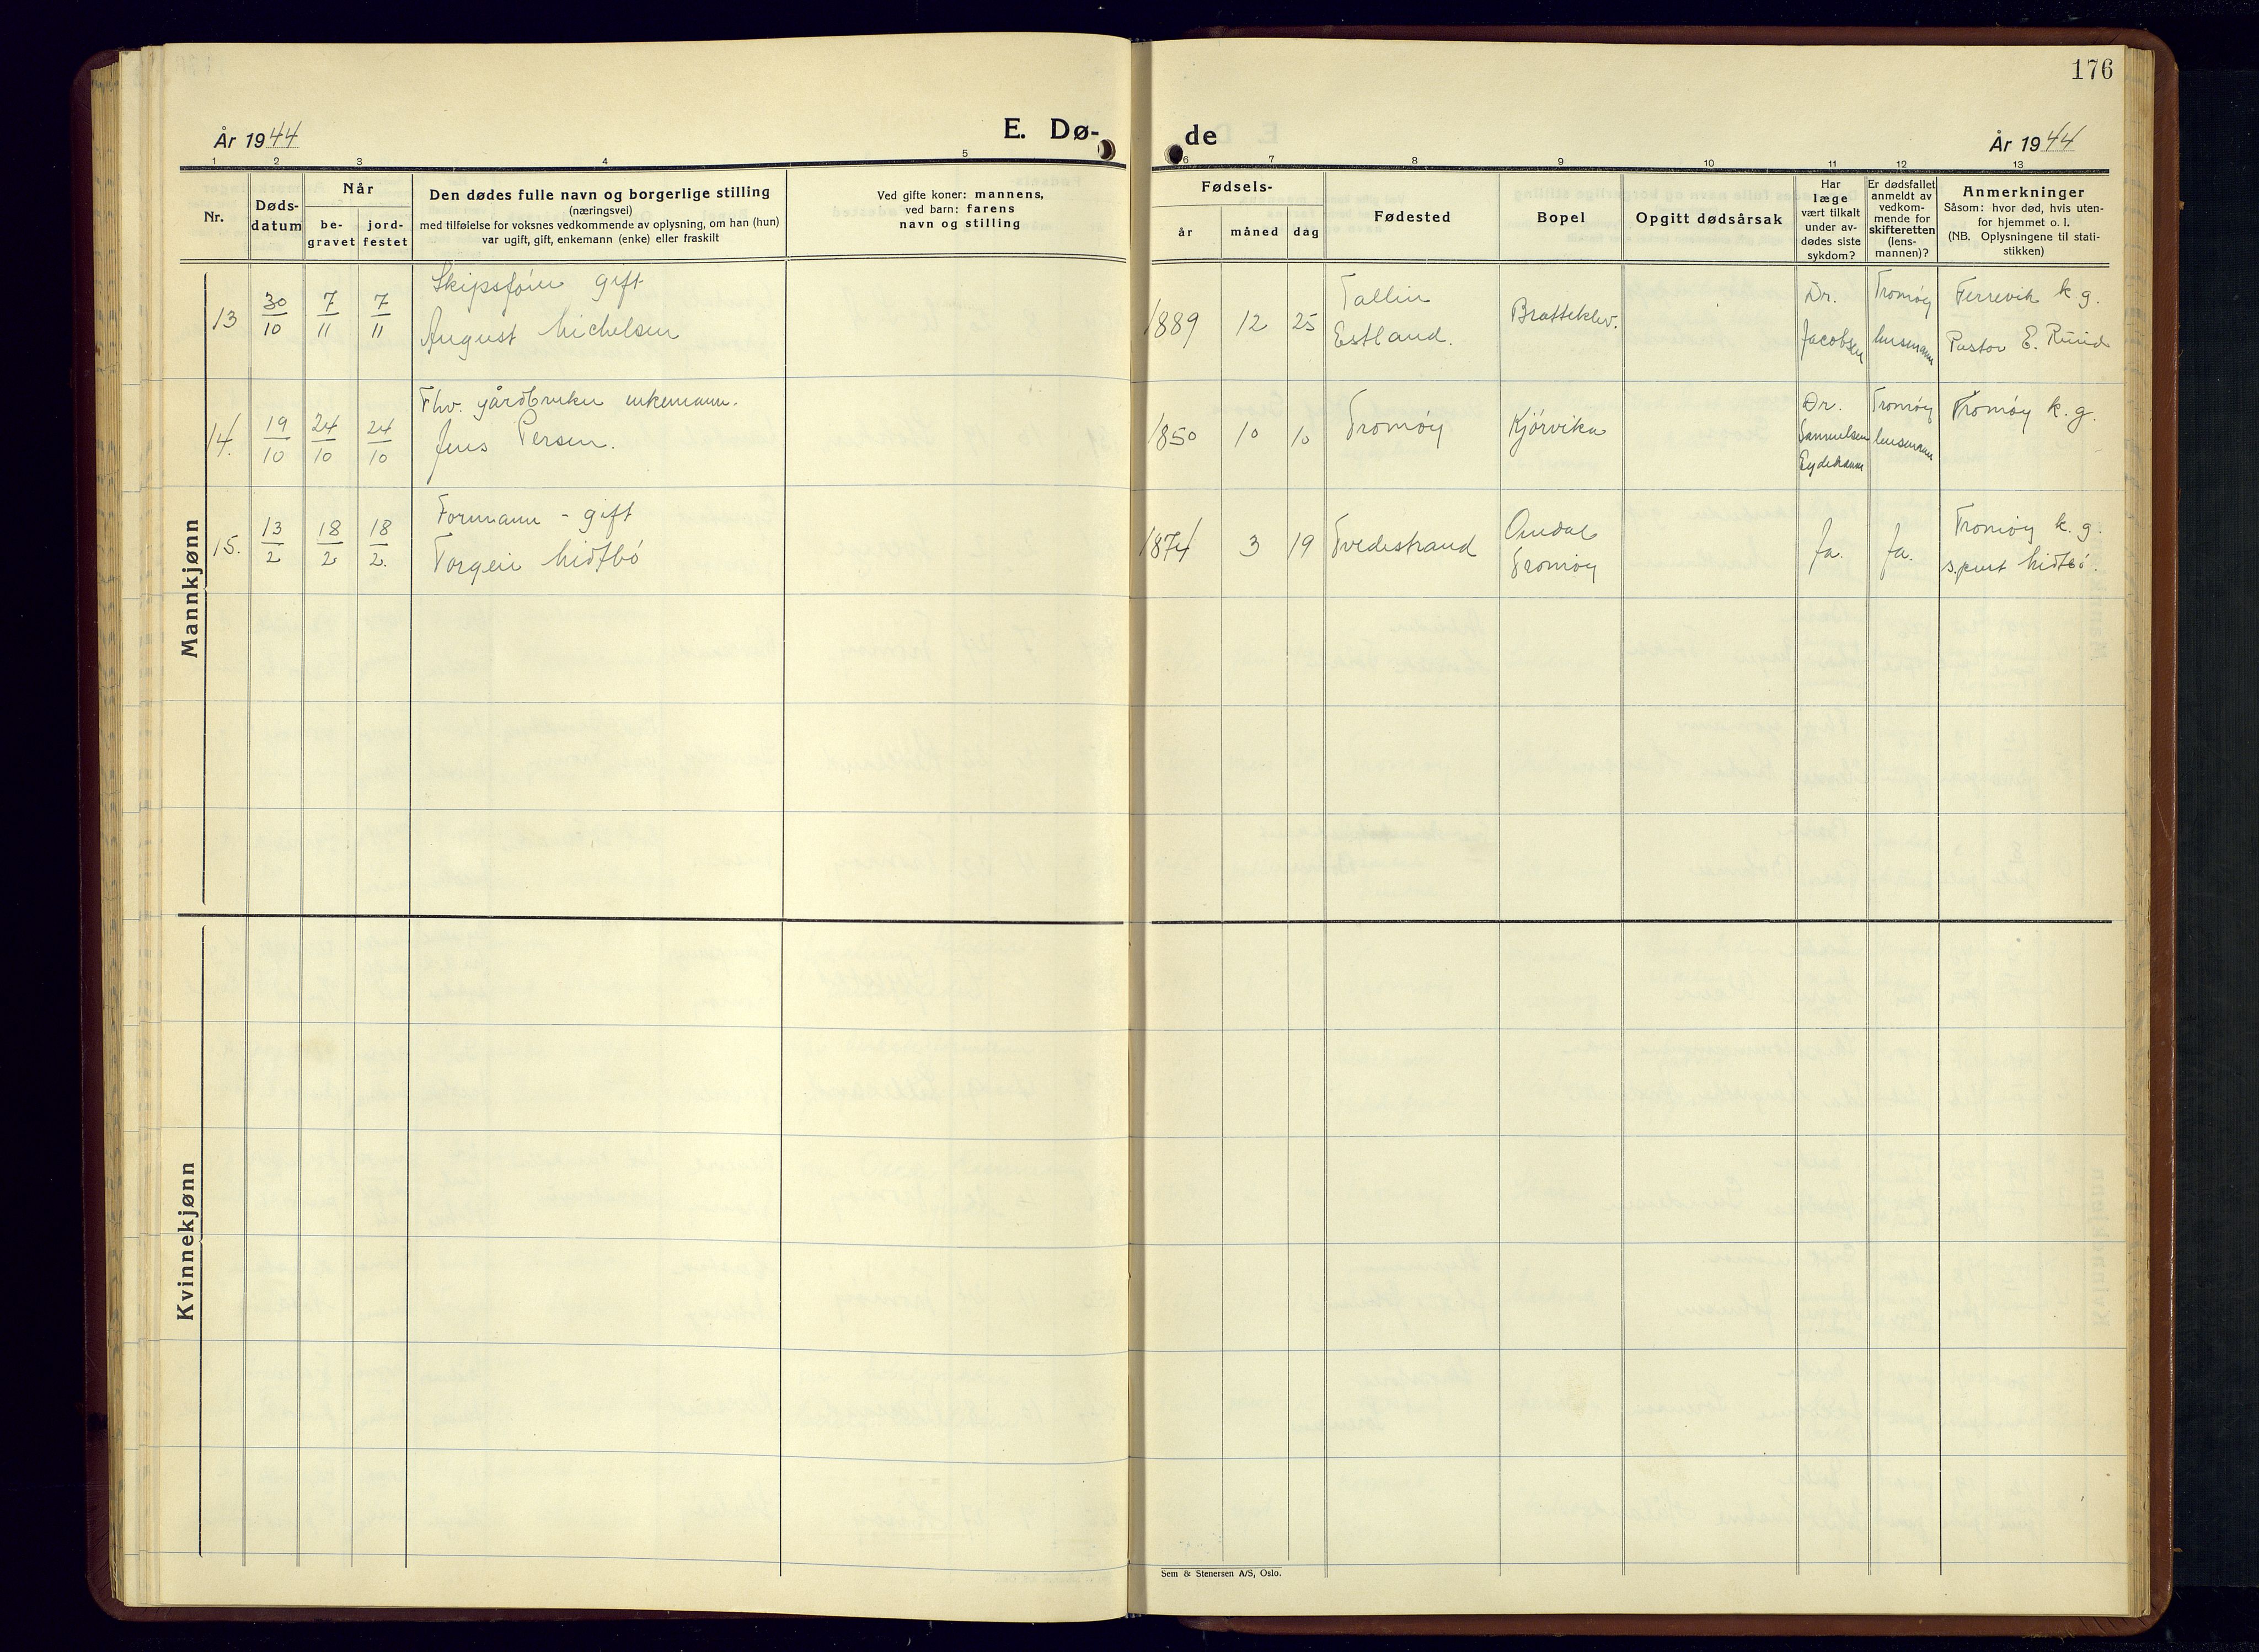 176
År 1944
E. Dø-
de
År 1944
1 2 3 4 5 6 7 8 9 10 11 12 13
Nr.
Døds-
datum
Når
be-
gravet
jord-
festet
Den dødes fulle navn og borgerlige stilling
(næringsvei)
med tilføielse for voksnes vedkommende av oplysning, om han (hun)
var ugift, gift, enkemann (enke) eller fraskilt
Ved gifte koner: mannens,
ved barn: farens
navn og stilling
Fødsels-
år
måned
dag
Fødested
Bopel
Opgitt dødsårsak
Har
læge
vært tilkalt
under av-
dødes siste
sykdom?
Er dødsfallet
anmeldt av
vedkom-
mende for
skifteretten
(lens-
mannen)?
Anmerkninger
Såsom: hvor død, hvis uten-
for hjemmet o. l.
(NB. Oplysningene til stati-
stikken)
Mannkjønn
13
30/10
7/11
7/11
Skipsfører gift
August Michelsen
1889
12
25
Tallin
Estland.
Bratteklev.
Dr.
Jacobsen
Tromøy
lensmann
Færvik k. g.
Pastor E. Ruud
14.
19/10
24/10
24/10
Fhv. gårdbruker enkemann.
Jens Persen.
1850
10
10
Tromøy
Kjørvika
Dr.
Samuelsen
Eydehavn
Tromøy
lensmann
Tromøy k. g.
15.
13/2
18/2
18/2.
Formann - gift
Torgeir Midtbø
1874
3
19
Tvedestrand
Omdal
Tromøy
Ja.
Ja.
Tromøy k. g.
Midtbø.
Kvinnekjønn
Sem & Stenersen A/S, Oslo.